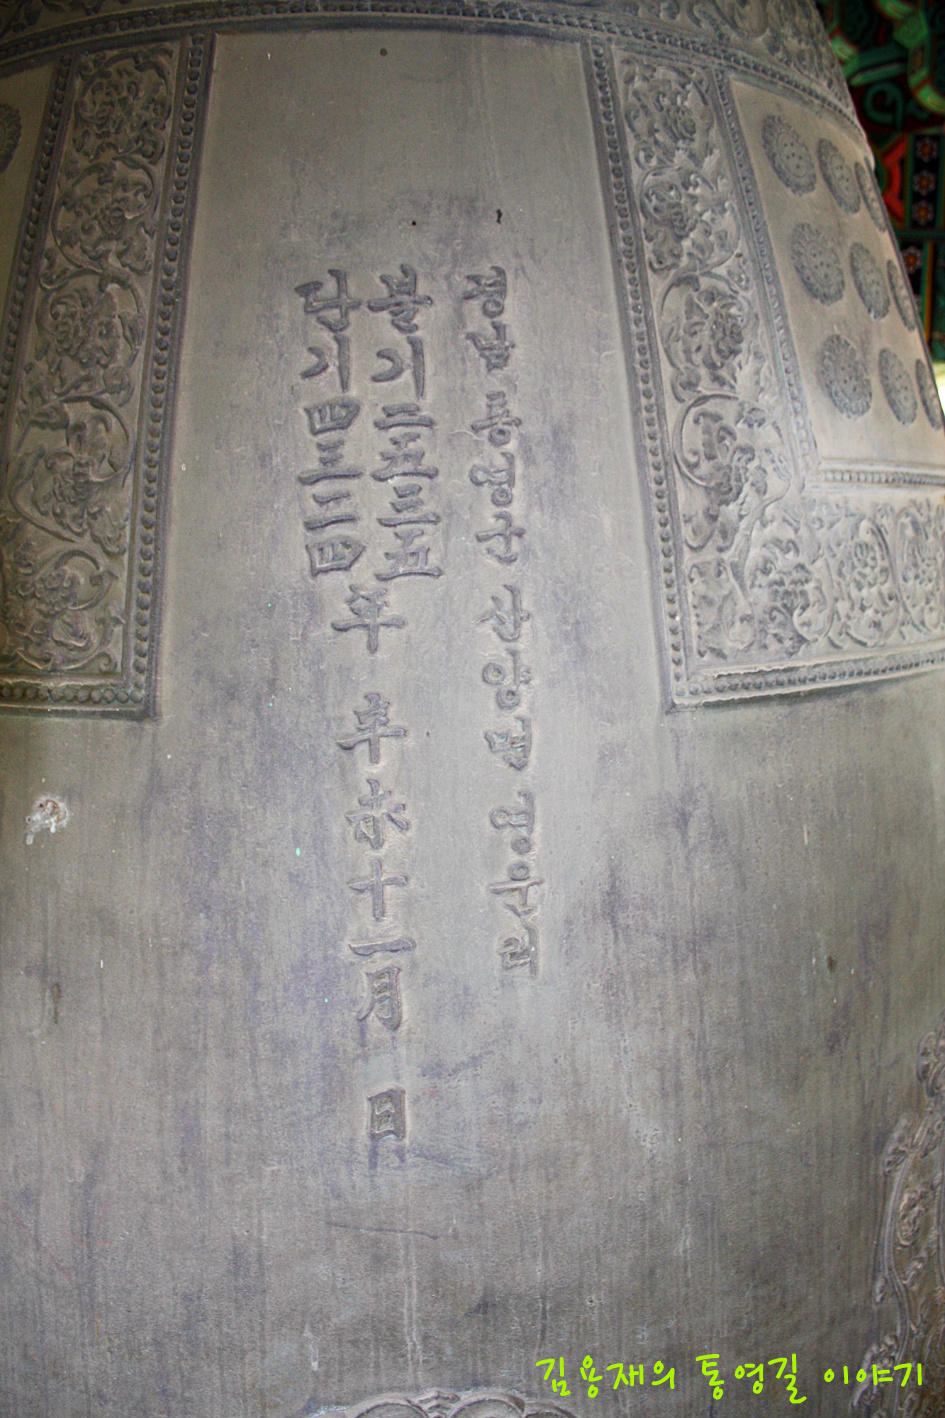 경남통영군 산양면 영운리
불기二五三五
단기四三二四
年 辛未十一月 日
김용재의 통영길 이야기